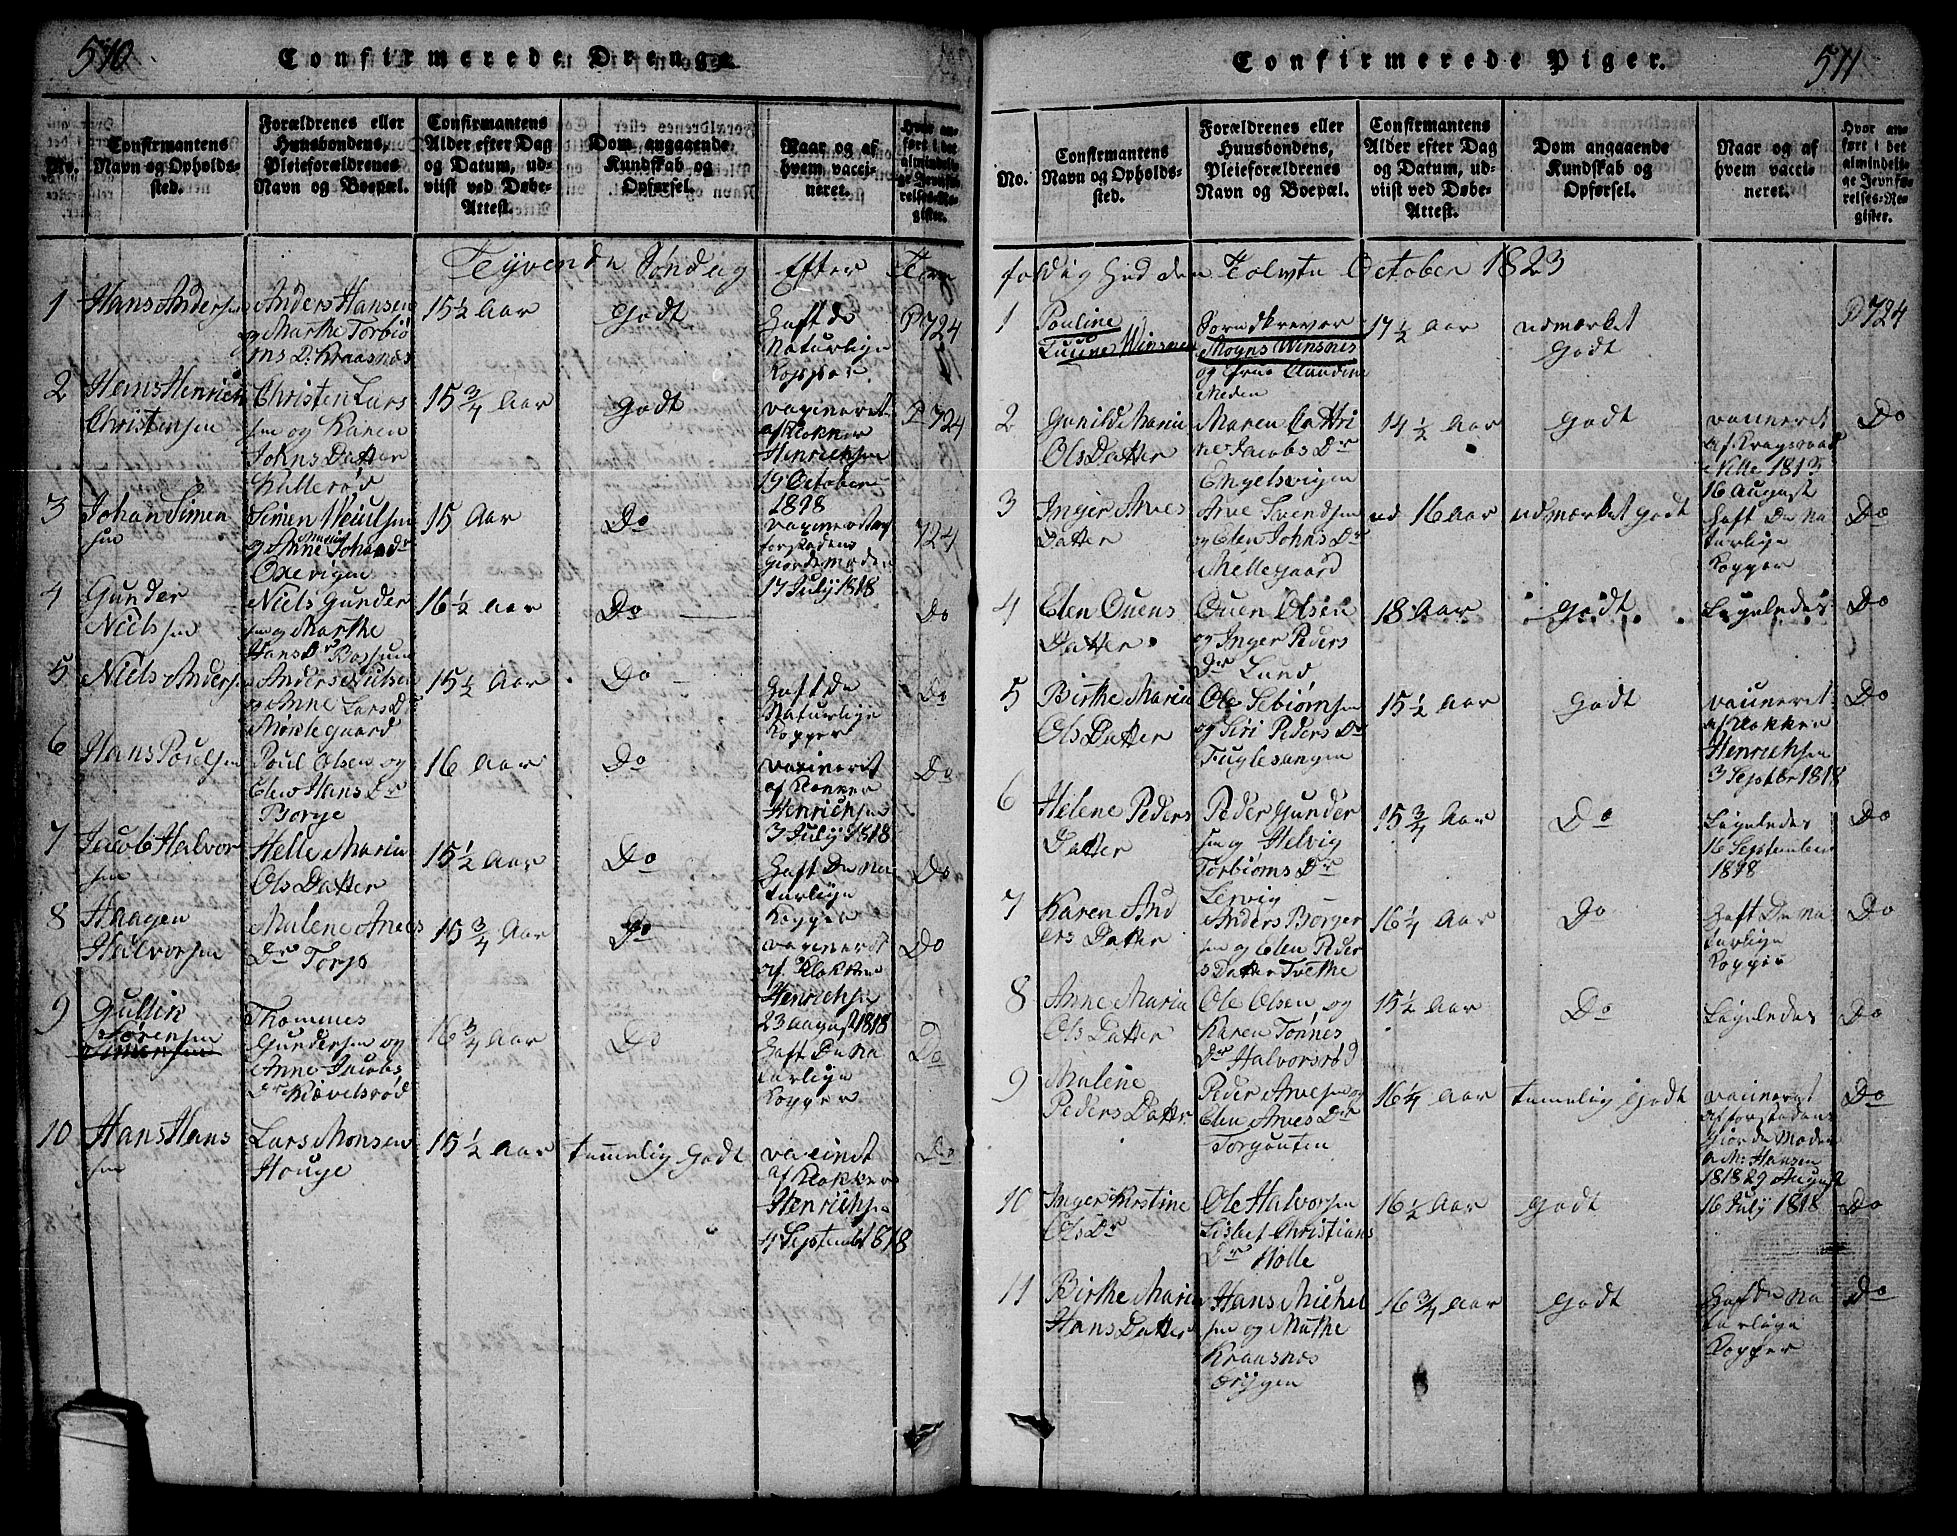 510
Confirmerede Drenge.
No.
Confirmantens
Navn og Opholds-
sted.
Forældrenes eller
Huusbondens,
Pleieforældrenes
Navn og Boepæl.
Confirmantens
Alder efter Dag
og Datum, ud-
viist ved Døbe-
Attest.
Dom angaaende
Kundskab og
Opførsel.
Naar og af
hvem vacci-
neret.
Hvor an-
ført i det
almindeli-
ge Jevnfø-
relses-Re-
gister.
Tyvende Søndag Efter Tre
1
Hans Andersen
Anders Hansen
og Marthe Torbiø
rns D. Kraasnæs
15½ Aar
Godt
Haft De
Naturlige
Kopper
P 724
2
Hans Henrich
Christensen
Christen Lars
sen og Karen
Johns Datter
Lullerød
15¾ Aar
Godt
vaxineret
af Klokker
Henrichsen
19 October
1818
P 724
3
Johan Simen
sen
Simen
og Anne Maria Johans Dr
Oxevigen
15 Aar
Do
vaxineret af
forstadens
Giordemoder
17 July 1818
724
4
Gunder
Nielsen
Niels Gunder
sen og Marthe
Hans Dr Rossum
16½ Aar
Do
Do
5
Niels Andersen
Anders
og Anne Lars D
Møstegaard
15½ Aar
Do
Haft De
Naturlige
Kopper
Do
6
Hans Poulsen
Poul Olsen og
Elen Hans Dr
Borge
16 Aar
Do
vaxineret
af Klokker
Henrichsen
3 July 1818
Do
7
Jacob Halvor
sen
Helle Maria
Ols Datter
15½ Aar
Do
Haft De na
turlige
Kopper
Do
8
Haagen
Halvorsen
Malene Arves
Dr Torp
15¾ Aar
Do
vaxineret
af Klokker
Henrichsen
23 august 1818
Do
9
Gullik
Sørensen
Thommes
Gundersen og
Anne Jacobs
Dr Kiævelsrød
16¾ Aar
Do
Haft De na
turlige
Kopper
Do
10
Hans Hans
sen
Lars Monsen
Houge
15½ Aar
temmelig Godt
vaxinet
af Klokker
Henrichsen
4 Septembr 1818
Do
Confirmerede Piger.
511
No.
Confirmantens
Navn og Opholds-
sted.
Forældrenes eller
Huusbondens,
Pleieforældrenes
Navn og Boepæl.
Confirmantens
Alder efter Dag
og Datum, ud-
viist ved Døbe-
Attest.
Dom angaaende
Kundskab og
Opførsel.
Naar og af
hvem vacci-
neret.
Hvor an-
ført i det
almindeli-
ge Jevnfø-
relses-Re-
gister.
foldighed den Tolvte October 1823
1
Pouline
Winsnes
Sorenskrever
Mogns Winsnes
og Frue Claudine
Meden
17½ Aar
udmærket
Godt
P 724
2
Gunild Maria
Ols Datter
Maren Cathri
ne Jacobs Dr
Engelsvigen
14½ Aar
Godt
vaxineret
af
1813
16 August
Do
3
Inger Arves
Datter
Arve Svendsen
og Elen Johns Dr
Mellegaard
16 Aar
udmærket godt
Haft De na
turlige
Kopper
Do
4
Elen Ouens
Datter
Ouen Olsen
og Inger Peders
Dr Lund
18 Aar
Godt
Ligeledes
Do
5
Birthe Maria
Ols Datter
Ole Sebiørnsen
og Siri Peders Dr
Fuglesangen
15½ Aar
Godt
vaxineret
af Klokker
Henrichsen
3 Septbr 1818
Do
6
Helene Peders
Datter
Peder Gunder
sen og Helvig
Torbiorns Dr
Lervig
15¾ Aar
Do
Ligeledes
16 September
1818
Do
7
Karen And
ers Datter
Anders Borger
sen og Elen Peder
s Datter Tvethe
16¼ Aar
Do
Haft De na
turlige
Kopper
Do
8
Anne Maria
Ols Datter
Ole Olsen og
Karen Tønnes
Dr Halvorsrød
15½ Aar
Do
Ligeledes
Do
9
Malene
Peders Datter
Peder Arvesen og
Elen Arves Dr
Torgouten
16¼ Aar
temmelig Godt
vaxineret
af forstadens
Giorde Moder
a M: Hansen
1818 29 August
Do
10
Inger Kirstine
Ols Dr
Ole Halvorsen
Lisbet Christians
Dr Holle
16½ Aar
Godt
16 July 1818
Do
11
Birthe Maria
Hans Datter
Hans Michel
sen og Mathe
Kraasnæs
øriggen
16¾ Aar
Godt
Haft De na
turlige
Kopper
Do